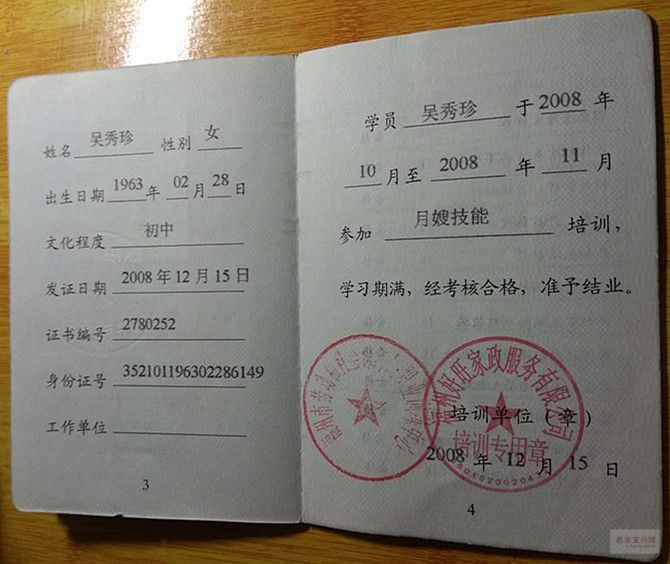 姓名 吴秀珍 性别 女
出生日期 1963 年 02 月 28 日
文化程度 初中
发证日期 2008 年 12 月 15 日
证书编号 2780252
身份证号 352101196302286149
工作单位
3
学员 吴秀珍 于 2008 年
10 月至 2008 年 11 月
参加 月嫂技能 培训，
学习期满，经考核合格，准予结业。
好旺家政服务有限公司
培训单位（章）
培训专用章
2008 年 12 月 15 日
4